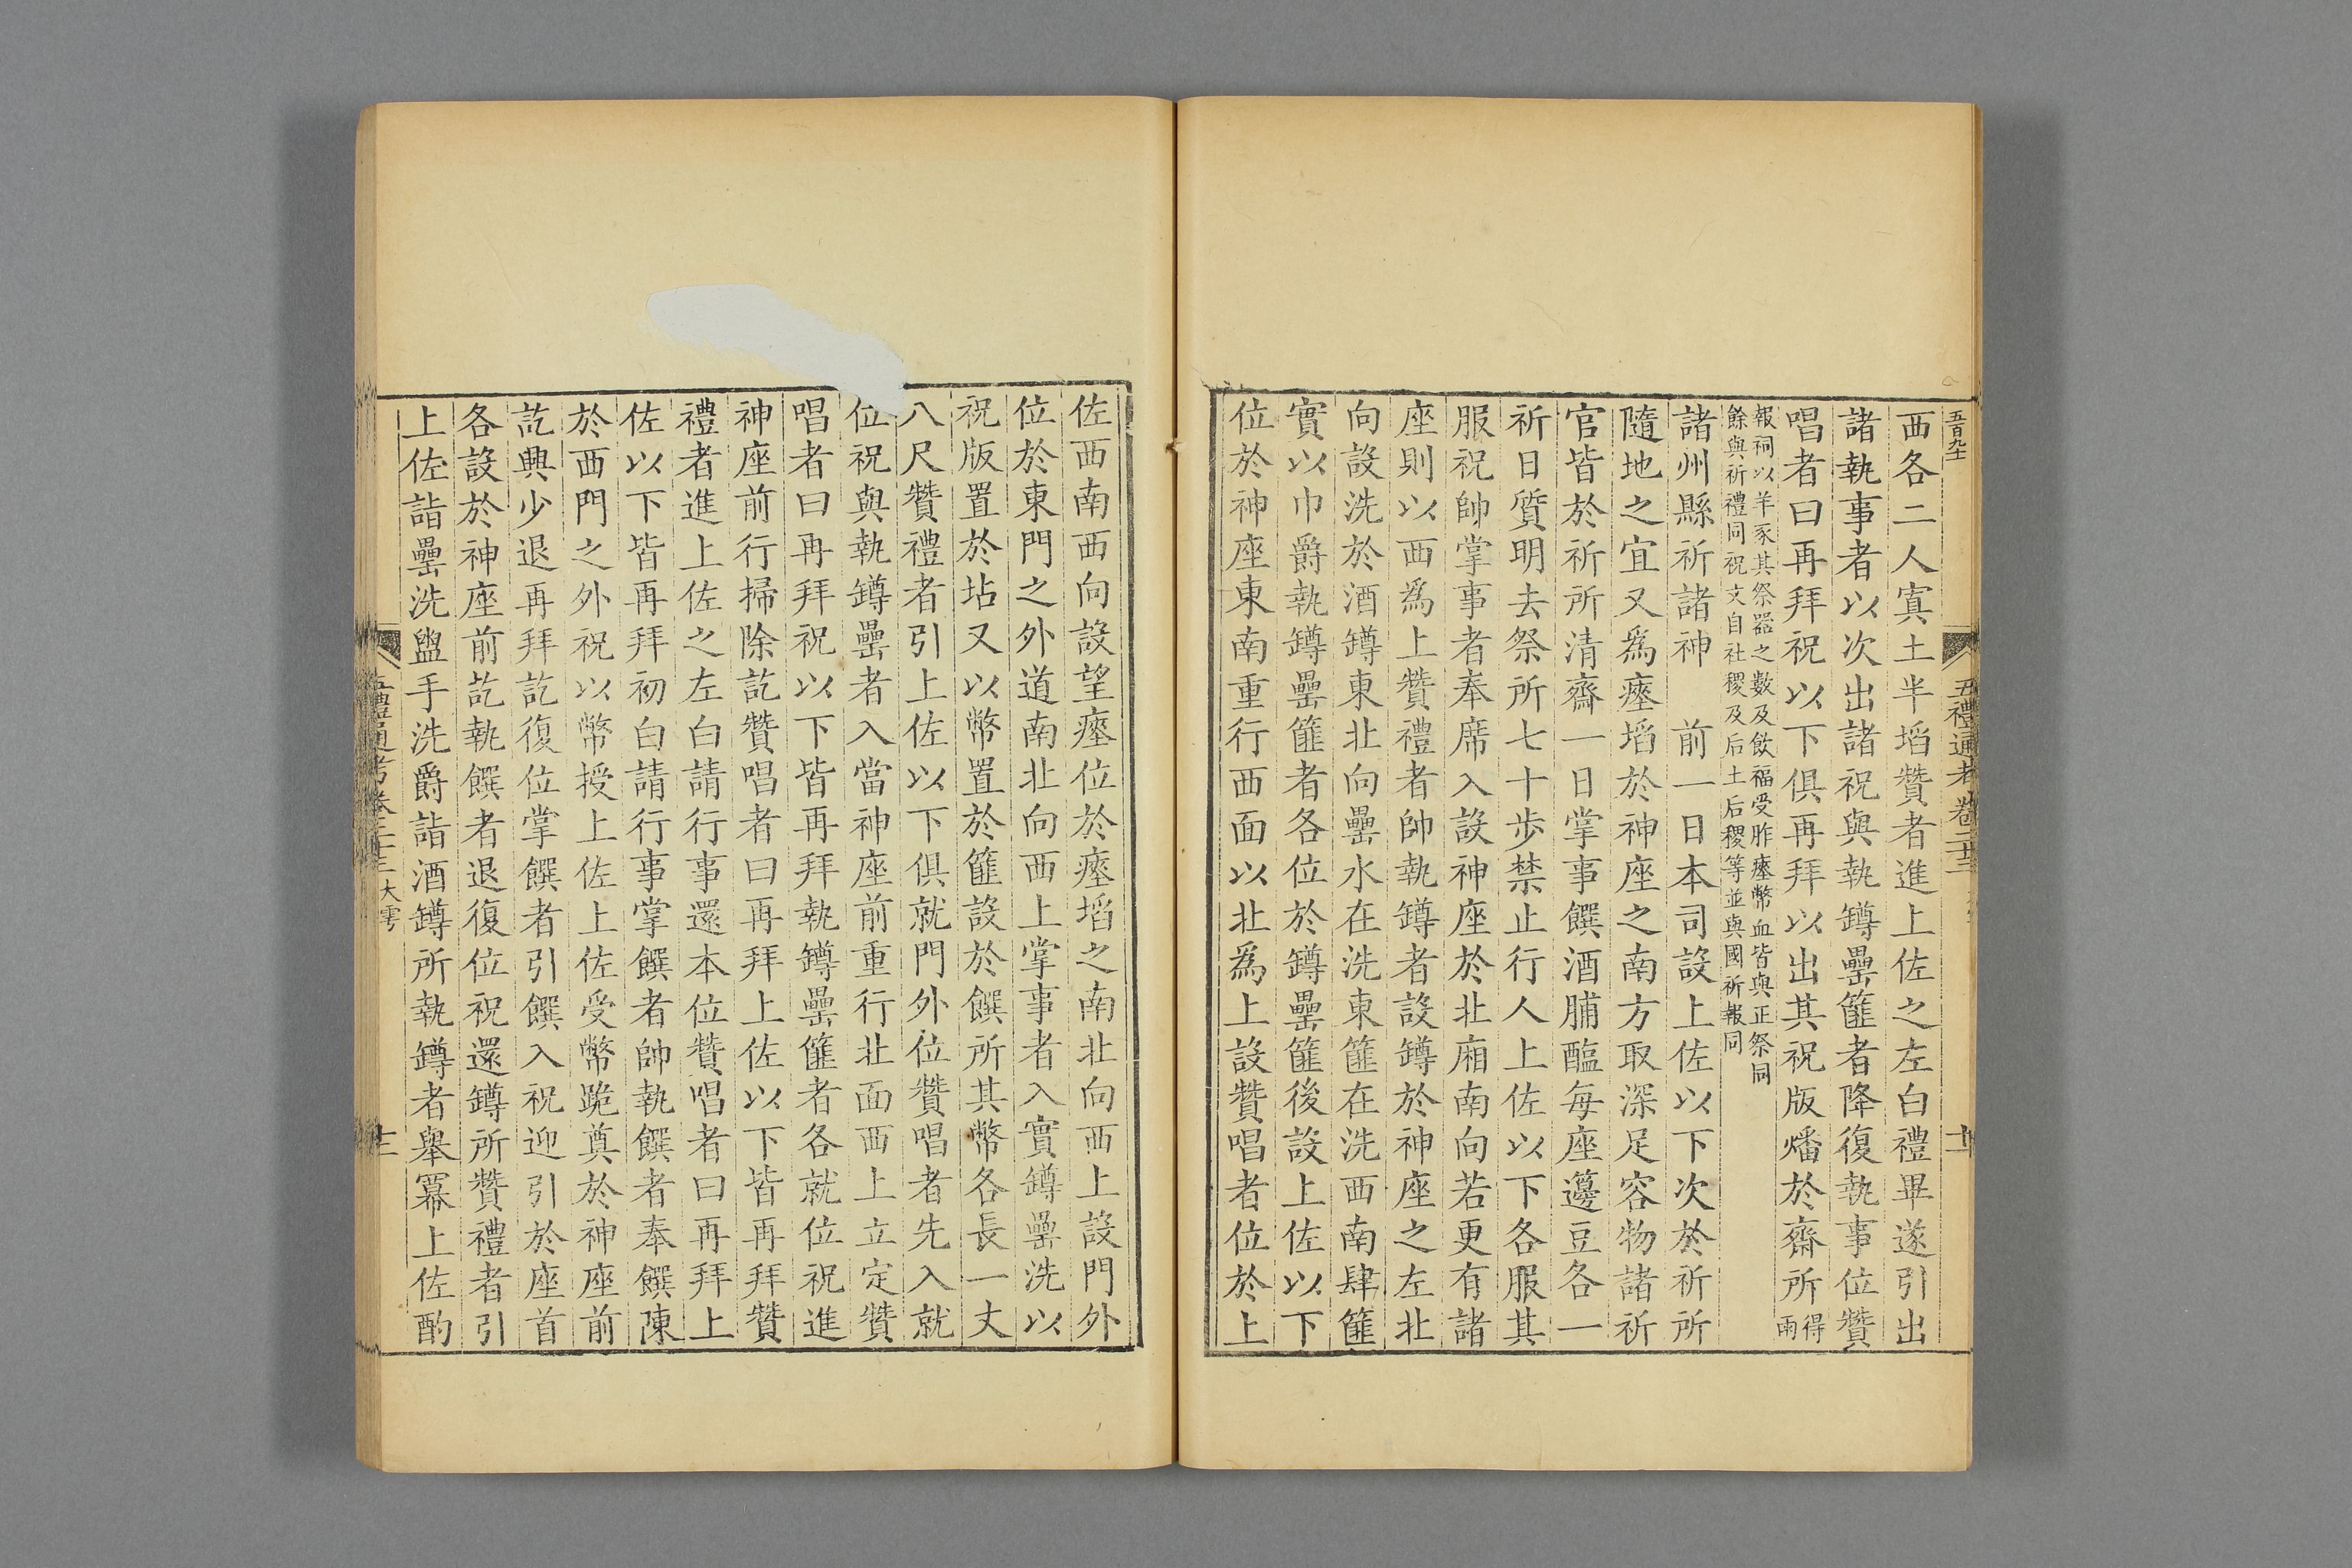 五禮通考卷二十二
西各二人寘土半埳贊者進上佐之左白禮畢遂引出
諸執事者以次出諸祝與執罇罍篚者降復執事位贊
唱者曰再拜祝以下俱再拜以出其祝版燔於齋所得
雨
報祠以羊豕其祭器之數及飲福受胙瘞幣血皆與正祭同
餘與祈禮同祝文自社稷及后土后稷等並與國祈報同
諸州縣祈諸神 前一日本司設上佐以下次於祈所
隨地之宜又爲瘞埳於神座之南方取深足容物諸祈
官皆於祈所清齋一日掌事饌酒脯醢每座籩豆各一
祈日質明去祭所七十步禁止行人上佐以下各服其
服祝帥掌事者奉席入設神座於北廂南向若更有諸
座則以西爲上贊禮者帥執罇者設罇於神座之左北
向設洗於酒罇東北向罍水在洗東篚在洗西南肆篚
實以巾爵執罇罍篚者各位於罇罍篚後設上佐以下
位於神座東南重行西面以北爲上設贊唱者位於上
佐西南西向設望瘞位於瘞埳之南北向西上設門外
位於東門之外道南北向西上掌事者入實罇罍洗以
祝版置於坫又以幣置於篚設於饌所其幣各長一丈
八尺贊禮者引上佐以下俱就門外位贊唱者先入就
位祝與執罇罍者入當神座前重行北面西上立定贊
唱者曰再拜祝以下皆再拜執罇罍篚者各就位祝進
神座前行掃除訖贊唱者曰再拜上佐以下皆再拜贊
禮者進上佐之左白請行事還本位贊唱者曰再拜上
佐以下皆再拜初白請行事掌饌者帥執饌者奉饌陳
於西門之外祝以幣授上佐上佐受幣跪奠於神座前
訖興少退再拜訖復位掌饌者引饌入祝迎引於座首
各設於神座前訖執饌者退復位祝還罇所贊禮者引
上佐詣罍洗盥手洗爵詣酒罇所執罇者舉冪上佐酌
大雩